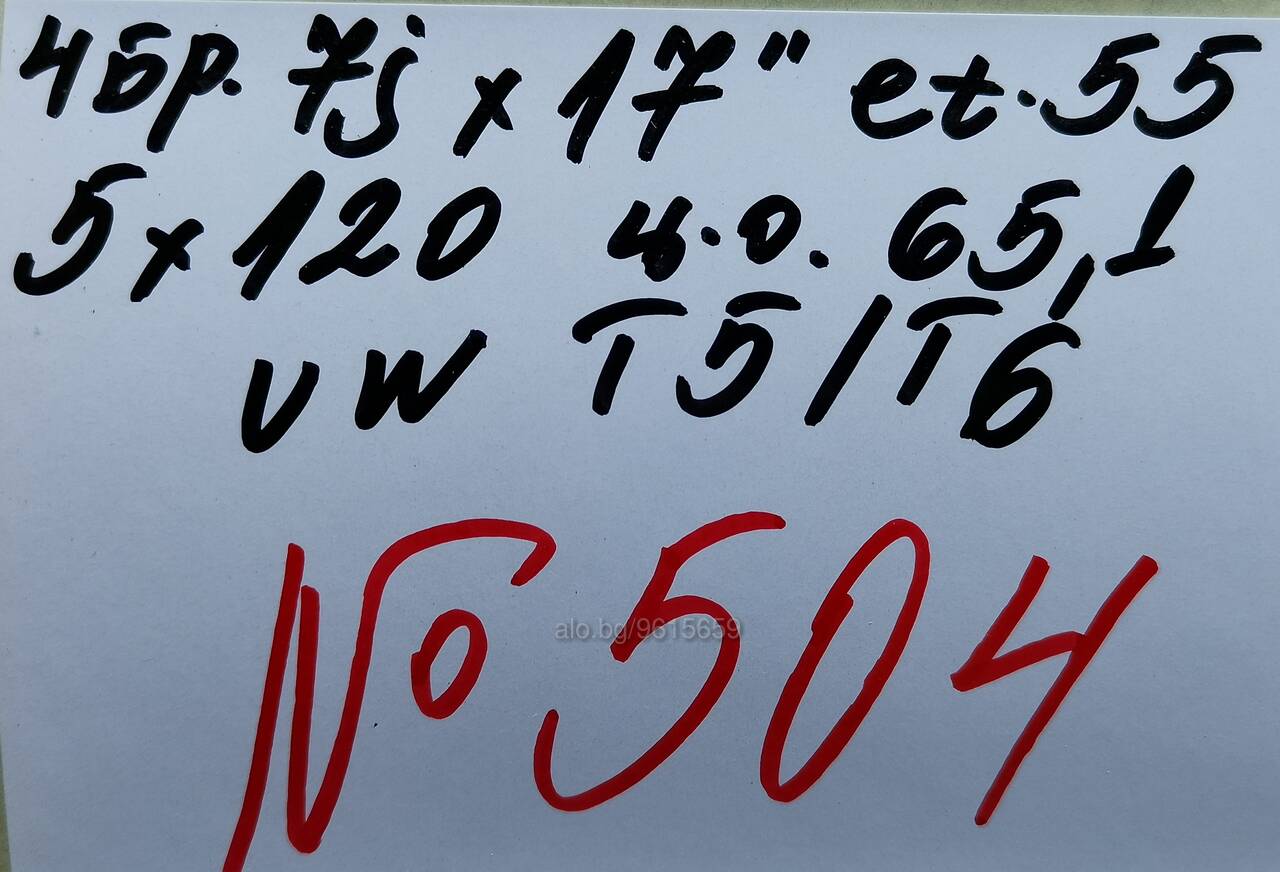 4бр. 7j x 17" et.55
5x120 ц.о. 65,1
VW T5/T6
№ 504
alo.bg/9615659